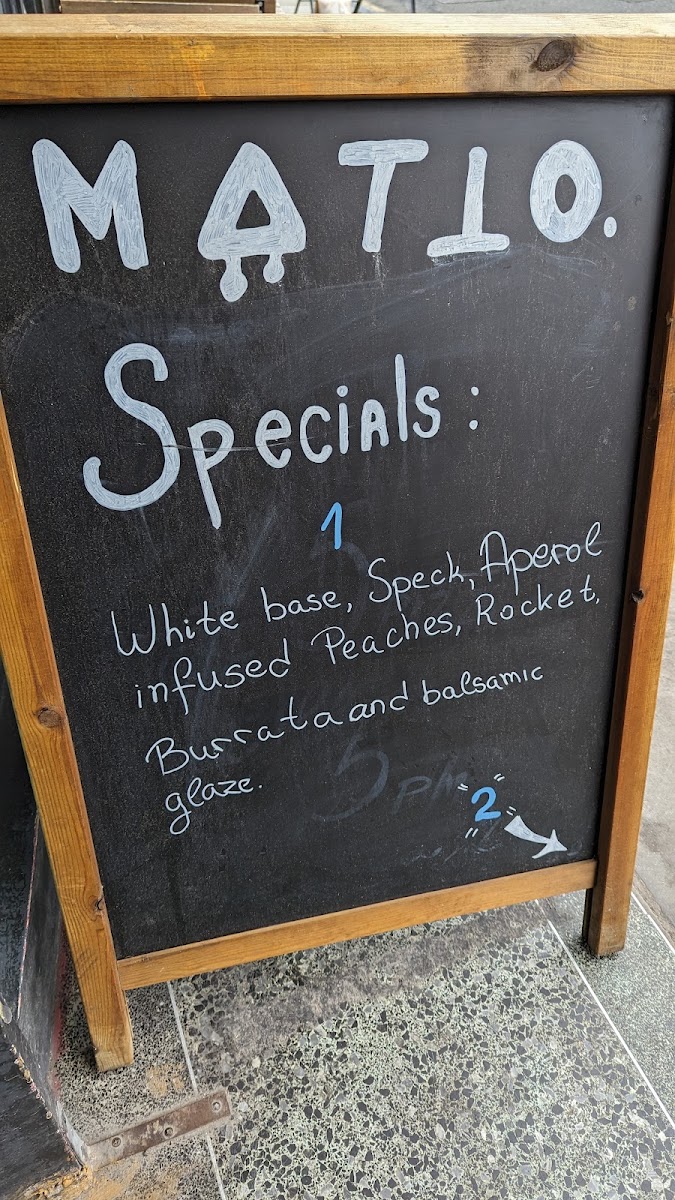 MATIO.
Specials:
1
White base, Speck, Aperol
infused Peaches, Rocket,
Burrata and balsamic
glaze.
5 pm
"2"